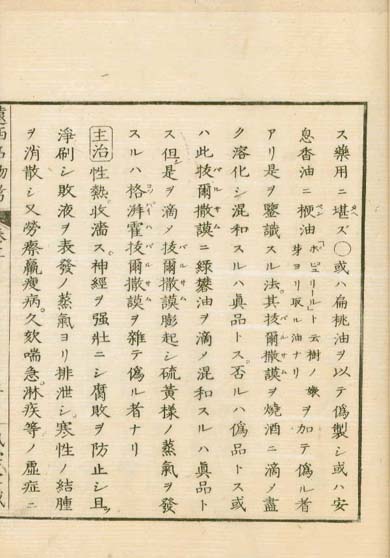 ス藥用ニ堪ズ〇或ハ扁桃油ヲ以テ偽製シ或ハ安
息香油ニ梗油「ポピュリール」ト云樹ノ嫩芽ヨリ取ル油ナリヲ加テ偽ル者
アリ是ヲ鑒識スル法其拔爾撒謨ヲ燒酒ニ滴メ盡
ク溶化シ混和スルハ眞品トス否ルハ偽品トス或
ハ此拔爾撒謨ニ綠礬油ヲ滴メ混和スルハ眞品ト
ス但是ヲ滴メ拔爾撒謨膨起シ硫黄樣ノ蒸氣ヲ發
スルハ格湃霍拔爾撒謨ヲ雜テ偽ル者ナリ
主治 性熱收濇ス神經ヲ强壮ニシ腐敗ヲ防止シ且ツ
淨刷シ敗液ヲ表發ノ蒸氣ヨリ排泄シ寒性ノ結腫
ヲ消散シ又勞瘵羸瘦病久欬喘急淋疾等ノ虛症ニ
遠西
物考